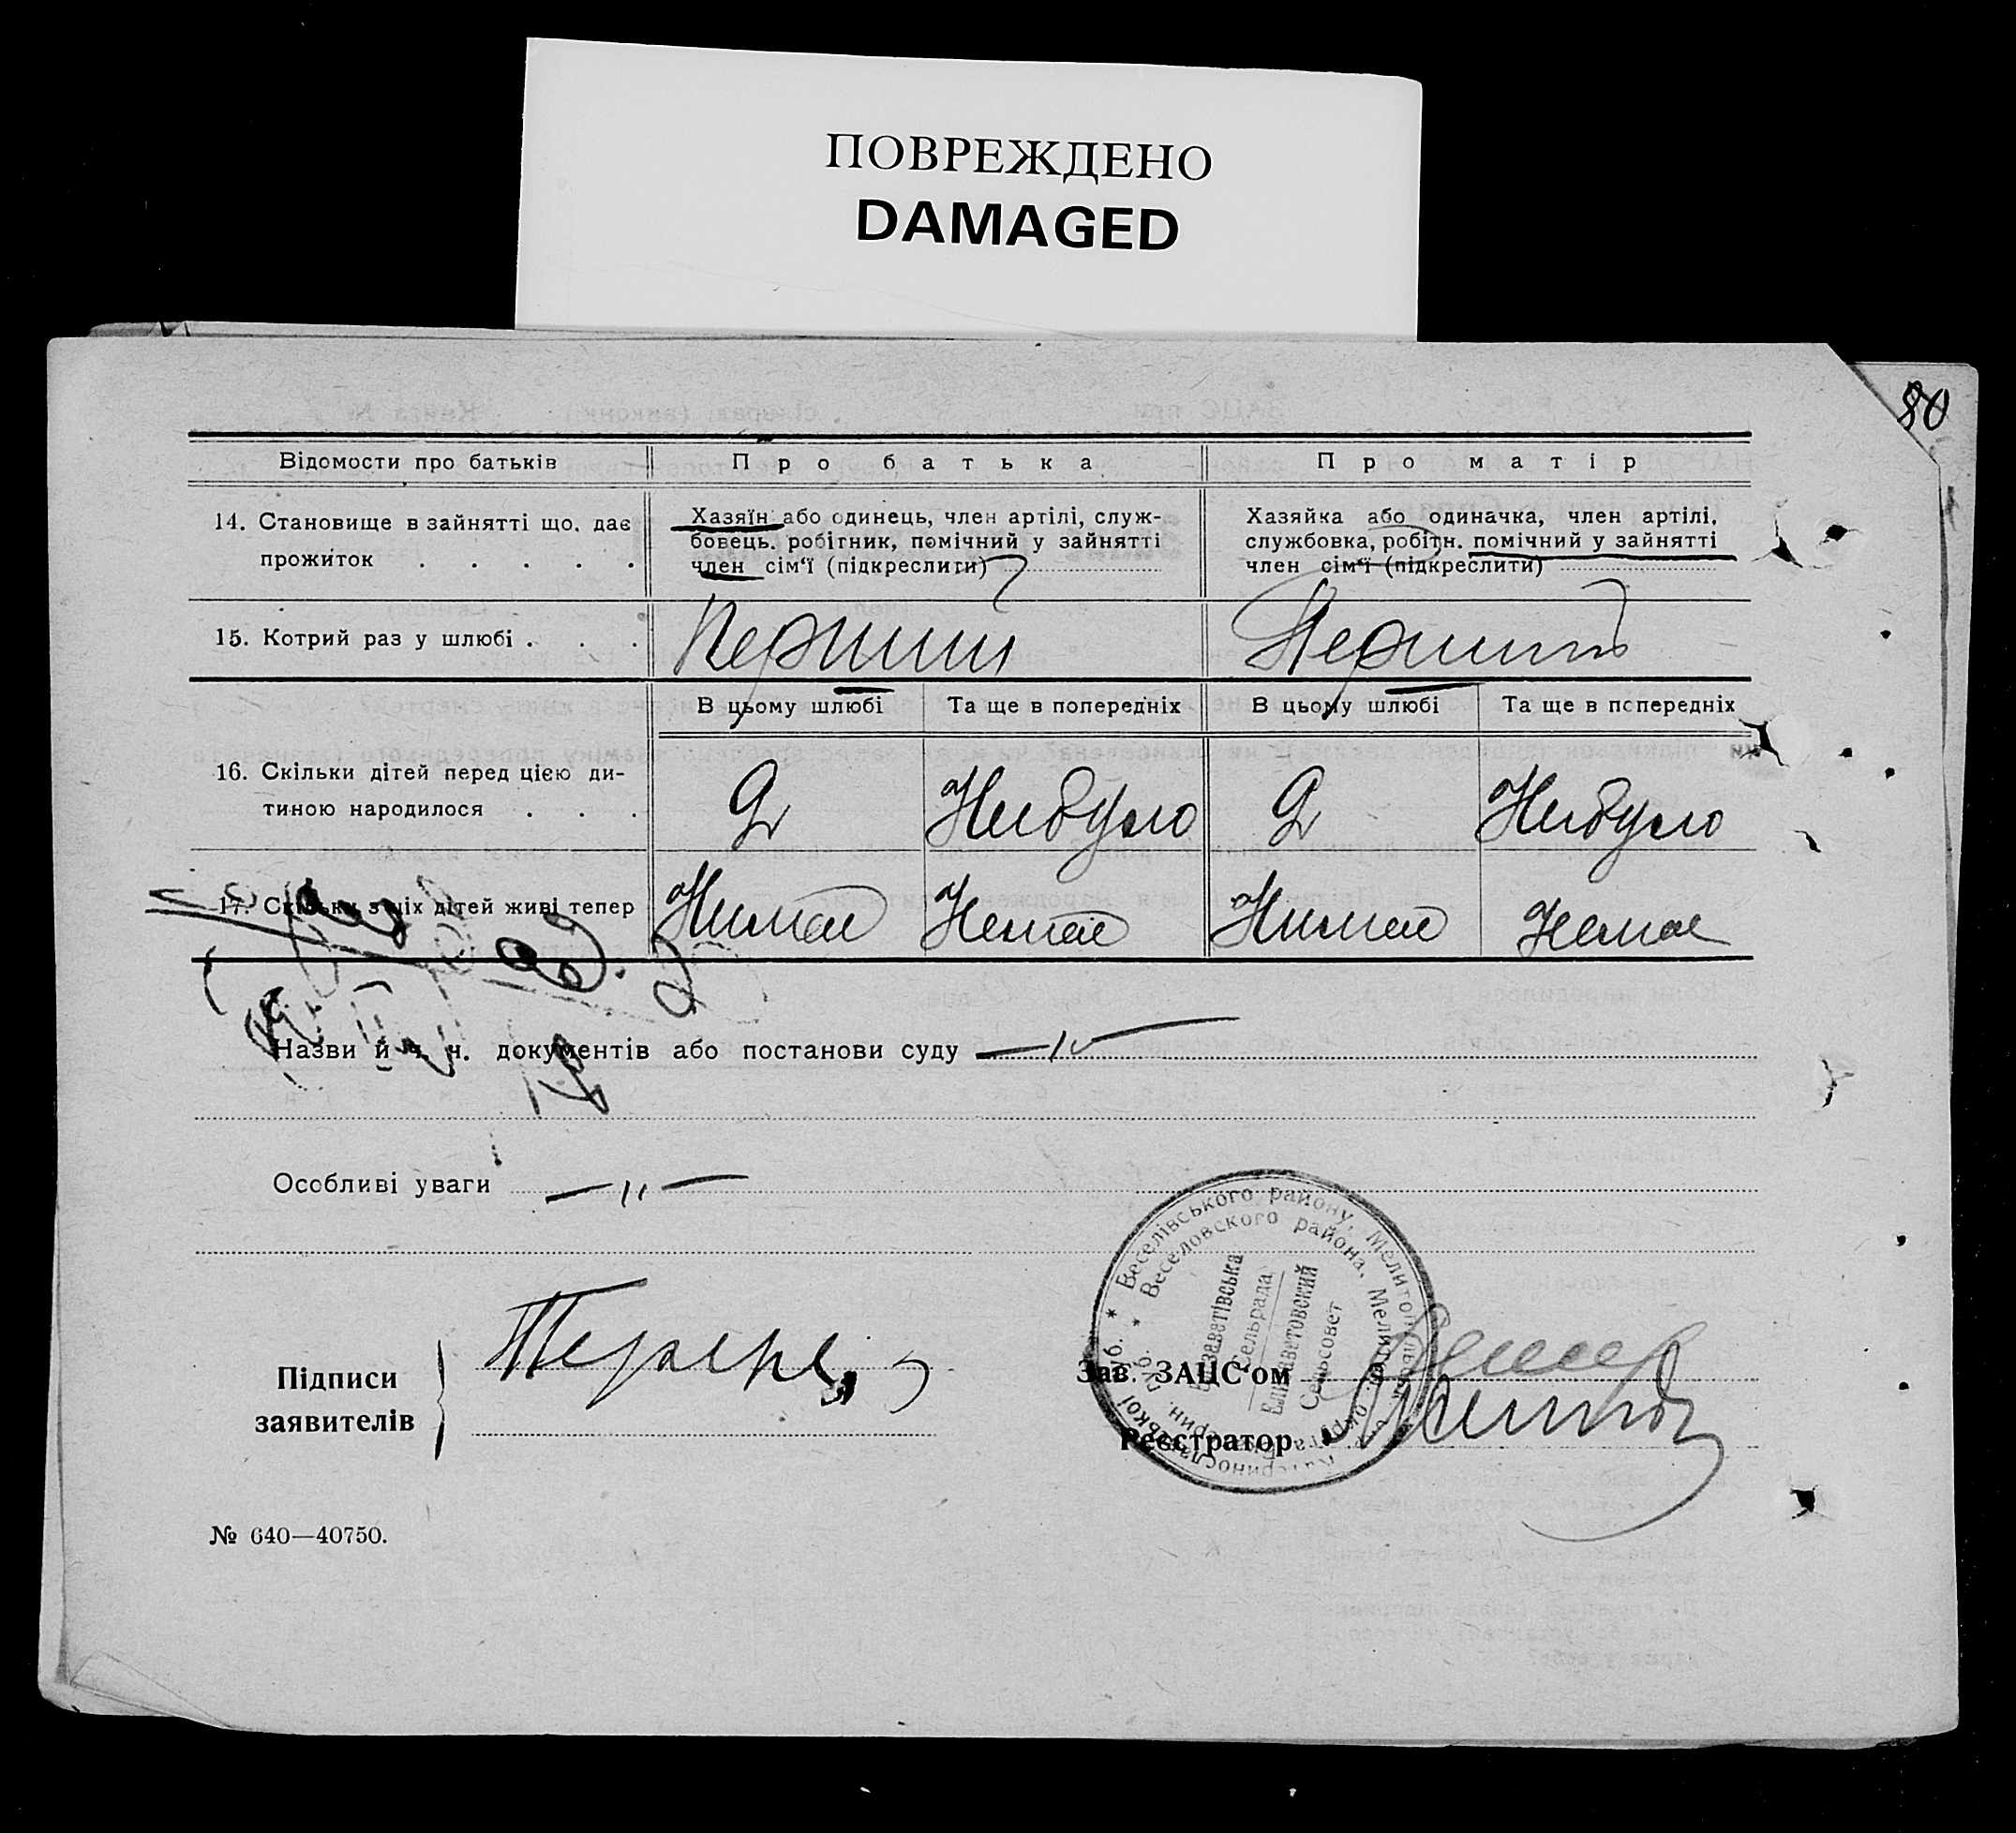 ПОВРЕЖДЕНО
DAMAGED
80
Відомости про батьків
Про батька
Про матір
14. Становище в зайнятті що дає
прожиток . . . . .
Хазяїн або одинець, член артілі, служ-
бовець, робітник, помічний у зайнятті
член сім'ї (підкреслити)
Хазяйка або одиначка, член артілі,
службовка, робітн. помічний у зайнятті
член сім'ї (підкреслити)
15. Котрий раз у шлюбі . . .
Перший
В цьому шлюбі
Та ще в попередніх
В цьому шлюбі
Та ще в попередніх
16. Скільки дітей перед цією ди-
тиною народилося . . .
2
Нибуло
2
Нибуло
17. Скільки з ціх дітей живі тепер
Нимає
Немає
Нимає
Немає
Назви й ч. ч. документів або постанови суду —"—
Особливі уваги —"—
Підписи
заявителів
Зав. ЗАЦС'ом
Реєстратор
* Веселівського району, Мелитопольської округи Катеринославської губ.
* Веселовского района, Мелитоп. округа Екатерин. губ.
Елизаветівська
Сельрада
Елизаветовский
Сельсовет
№ 640—40750.